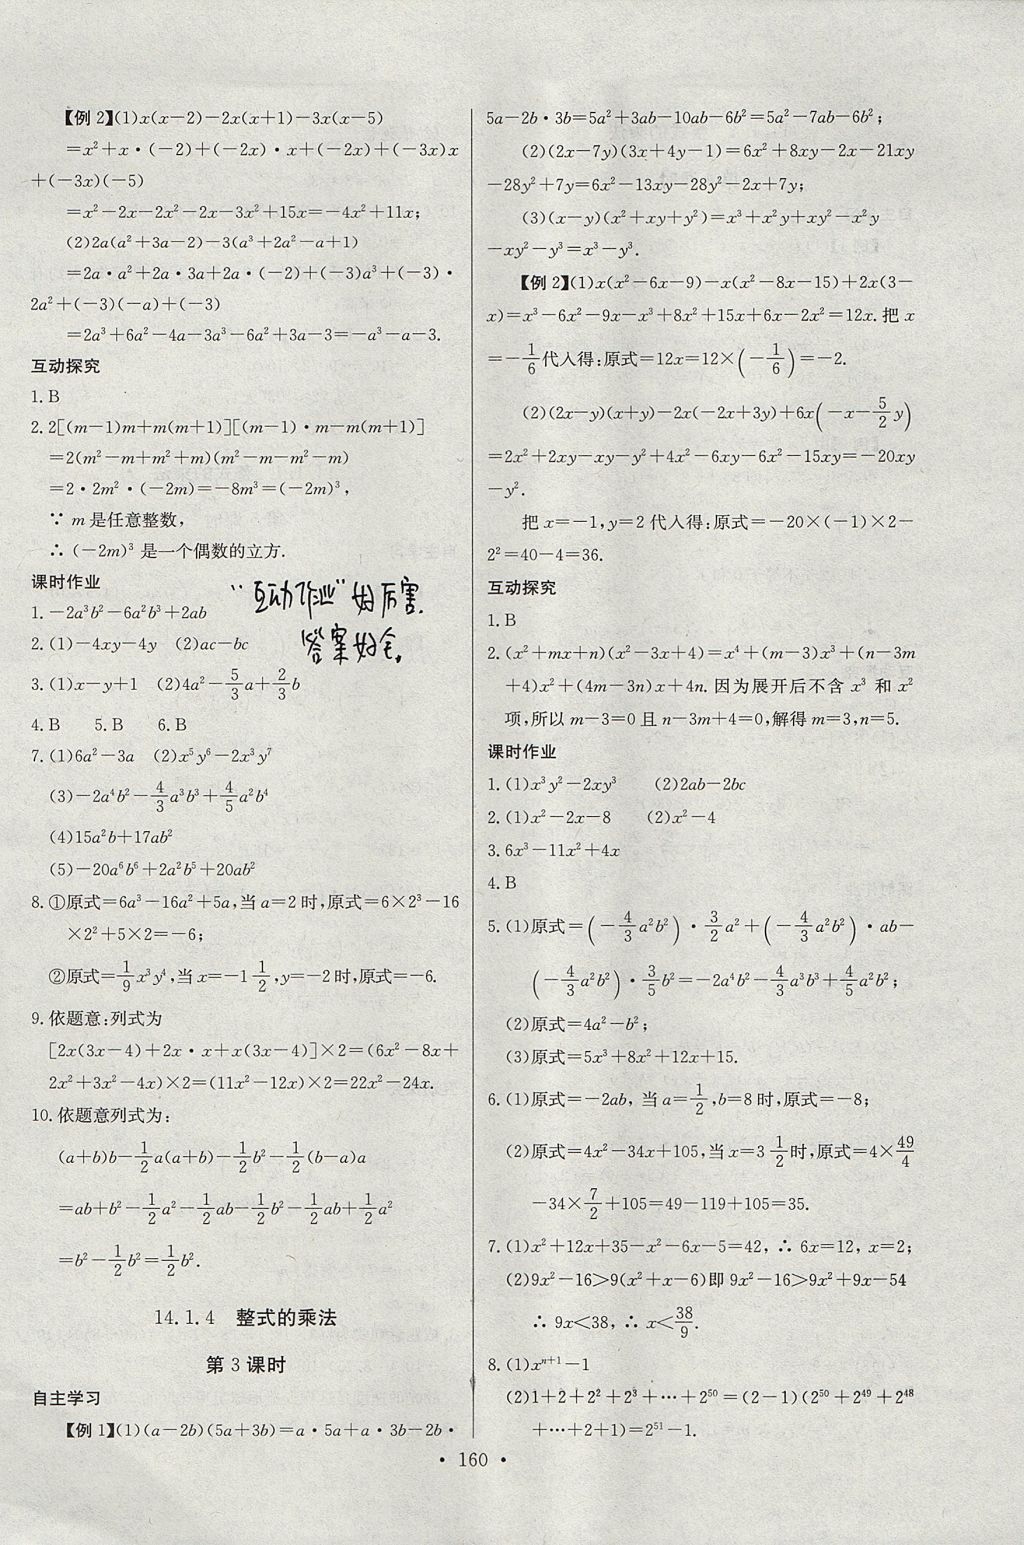 【例2】(1)x(x-2)-2x(x+1)-3x(x-5)
=x²+x·(-2)+(-2x)·x+(-2x)+(-3x)x
+(-3x)(-5)
=x²-2x-2x²-2x-3x²+15x=-4x²+11x;
(2)2a(a²+3a-2)-3(a³+2a²-a+1)
=2a·a²+2a·3a+2a·(-2)+(-3)a³+(-3)·
2a²+(-3)(-a)+(-3)
=2a³+6a²-4a-3a³-6a²+3a-3=-a³-a-3.
互动探究
1. B
2. 2[(m-1)m+m(m+1)][(m-1)·m-m(m+1)]
=2(m²-m+m²+m)(m²-m-m²-m)
=2·2m²·(-2m)=-8m³=(-2m)³,
∵ m是任意整数,
∴ (-2m)³ 是一个偶数的立方.
课时作业
1. -2a³b²-6a²b³+2ab
2. (1)-4xy-4y (2)ac-bc
3. (1)x-y+1 (2)4a²-5/3a+2/3b
4. B 5. B 6. B
7. (1)6a²-3a (2)x⁵y⁶-2x³y⁷
(3)-2a⁴b²-4/3a³b³+4/5a²b⁴
(4)15a²b+17ab²
(5)-20a⁶b⁶+2a²b⁵+20ab²
8. ①原式=6a³-16a²+5a,当a=2时,原式=6×2³-16
×2²+5×2=-6;
②原式=1/9x³y⁴,当x=-1 1/2,y=-2时,原式=-6.
9. 依题意:列式为
[2x(3x-4)+2x·x+x(3x-4)]×2=(6x²-8x+
2x²+3x²-4x)×2=(11x²-12x)×2=22x²-24x.
10. 依题意列式为:
(a+b)b-1/2a(a+b)-1/2b²-1/2(b-a)a
=ab+b²-1/2a²-1/2ab-1/2b²-1/2ab+1/2a²
=b²-1/2b²=1/2b².
14.1.4 整式的乘法
第3课时
自主学习
【例1】(1)(a-2b)(5a+3b)=a·5a+a·3b-2b·
"互动作业"好厉害,
答案好全。
5a-2b·3b=5a²+3ab-10ab-6b²=5a²-7ab-6b²;
(2)(2x-7y)(3x+4y-1)=6x²+8xy-2x-21xy
-28y²+7y=6x²-13xy-28y²-2x+7y;
(3)(x-y)(x²+xy+y²)=x³+x²y+xy²-x²y
-xy²-y³=x³-y³.
【例2】(1)x(x²-6x-9)-x(x²-8x-15)+2x(3-
x)=x³-6x²-9x-x³+8x²+15x+6x-2x²=12x.把x
=-1/6代入得:原式=12x=12×(-1/6)=-2.
(2)(2x-y)(x+y)-2x(-2x+3y)+6x(-x-5/2y)
=2x²+2xy-xy-y²+4x²-6xy-6x²-15xy=-20xy
-y².
把x=-1,y=2代入得:原式=-20×(-1)×2-
2²=40-4=36.
互动探究
1. B
2. (x²+mx+n)(x²-3x+4)=x⁴+(m-3)x³+(n-3m
+4)x²+(4m-3n)x+4n.因为展开后不含 x³ 和 x²
项,所以m-3=0且n-3m+4=0,解得m=3,n=5.
课时作业
1. (1)x³y²-2xy³ (2)2ab-2bc
2. (1)x²-2x-8 (2)x²-4
3. 6x³-11x²+4x
4. B
5. (1)原式=(-4/3a²b²)·3/2a²+(-4/3a²b²)·ab-
(-4/3a²b²)·3/5b²=-2a⁴b²-4/3a³b³+4/5a²b²;
(2)原式=4a²-b²;
(3)原式=5x³+8x²+12x+15.
6. (1)原式=-2ab,当a=1/2,b=8时,原式=-8;
(2)原式=4x²-34x+105,当x=3 1/2时,原式=4×49/4
-34×7/2+105=49-119+105=35.
7. (1)x²+12x+35-x²-6x-5=42,∴ 6x=12,x=2;
(2)9x²-16>9(x²+x-6)即9x²-16>9x²+9x-54
∴ 9x<38,∴ x<38/9.
8. (1)xⁿ⁺¹-1
(2)1+2+2²+2³+…+2⁵⁰=(2-1)(2⁵⁰+2⁴⁹+2⁴⁸
+…+2+1)=2⁵¹-1.
· 160 ·